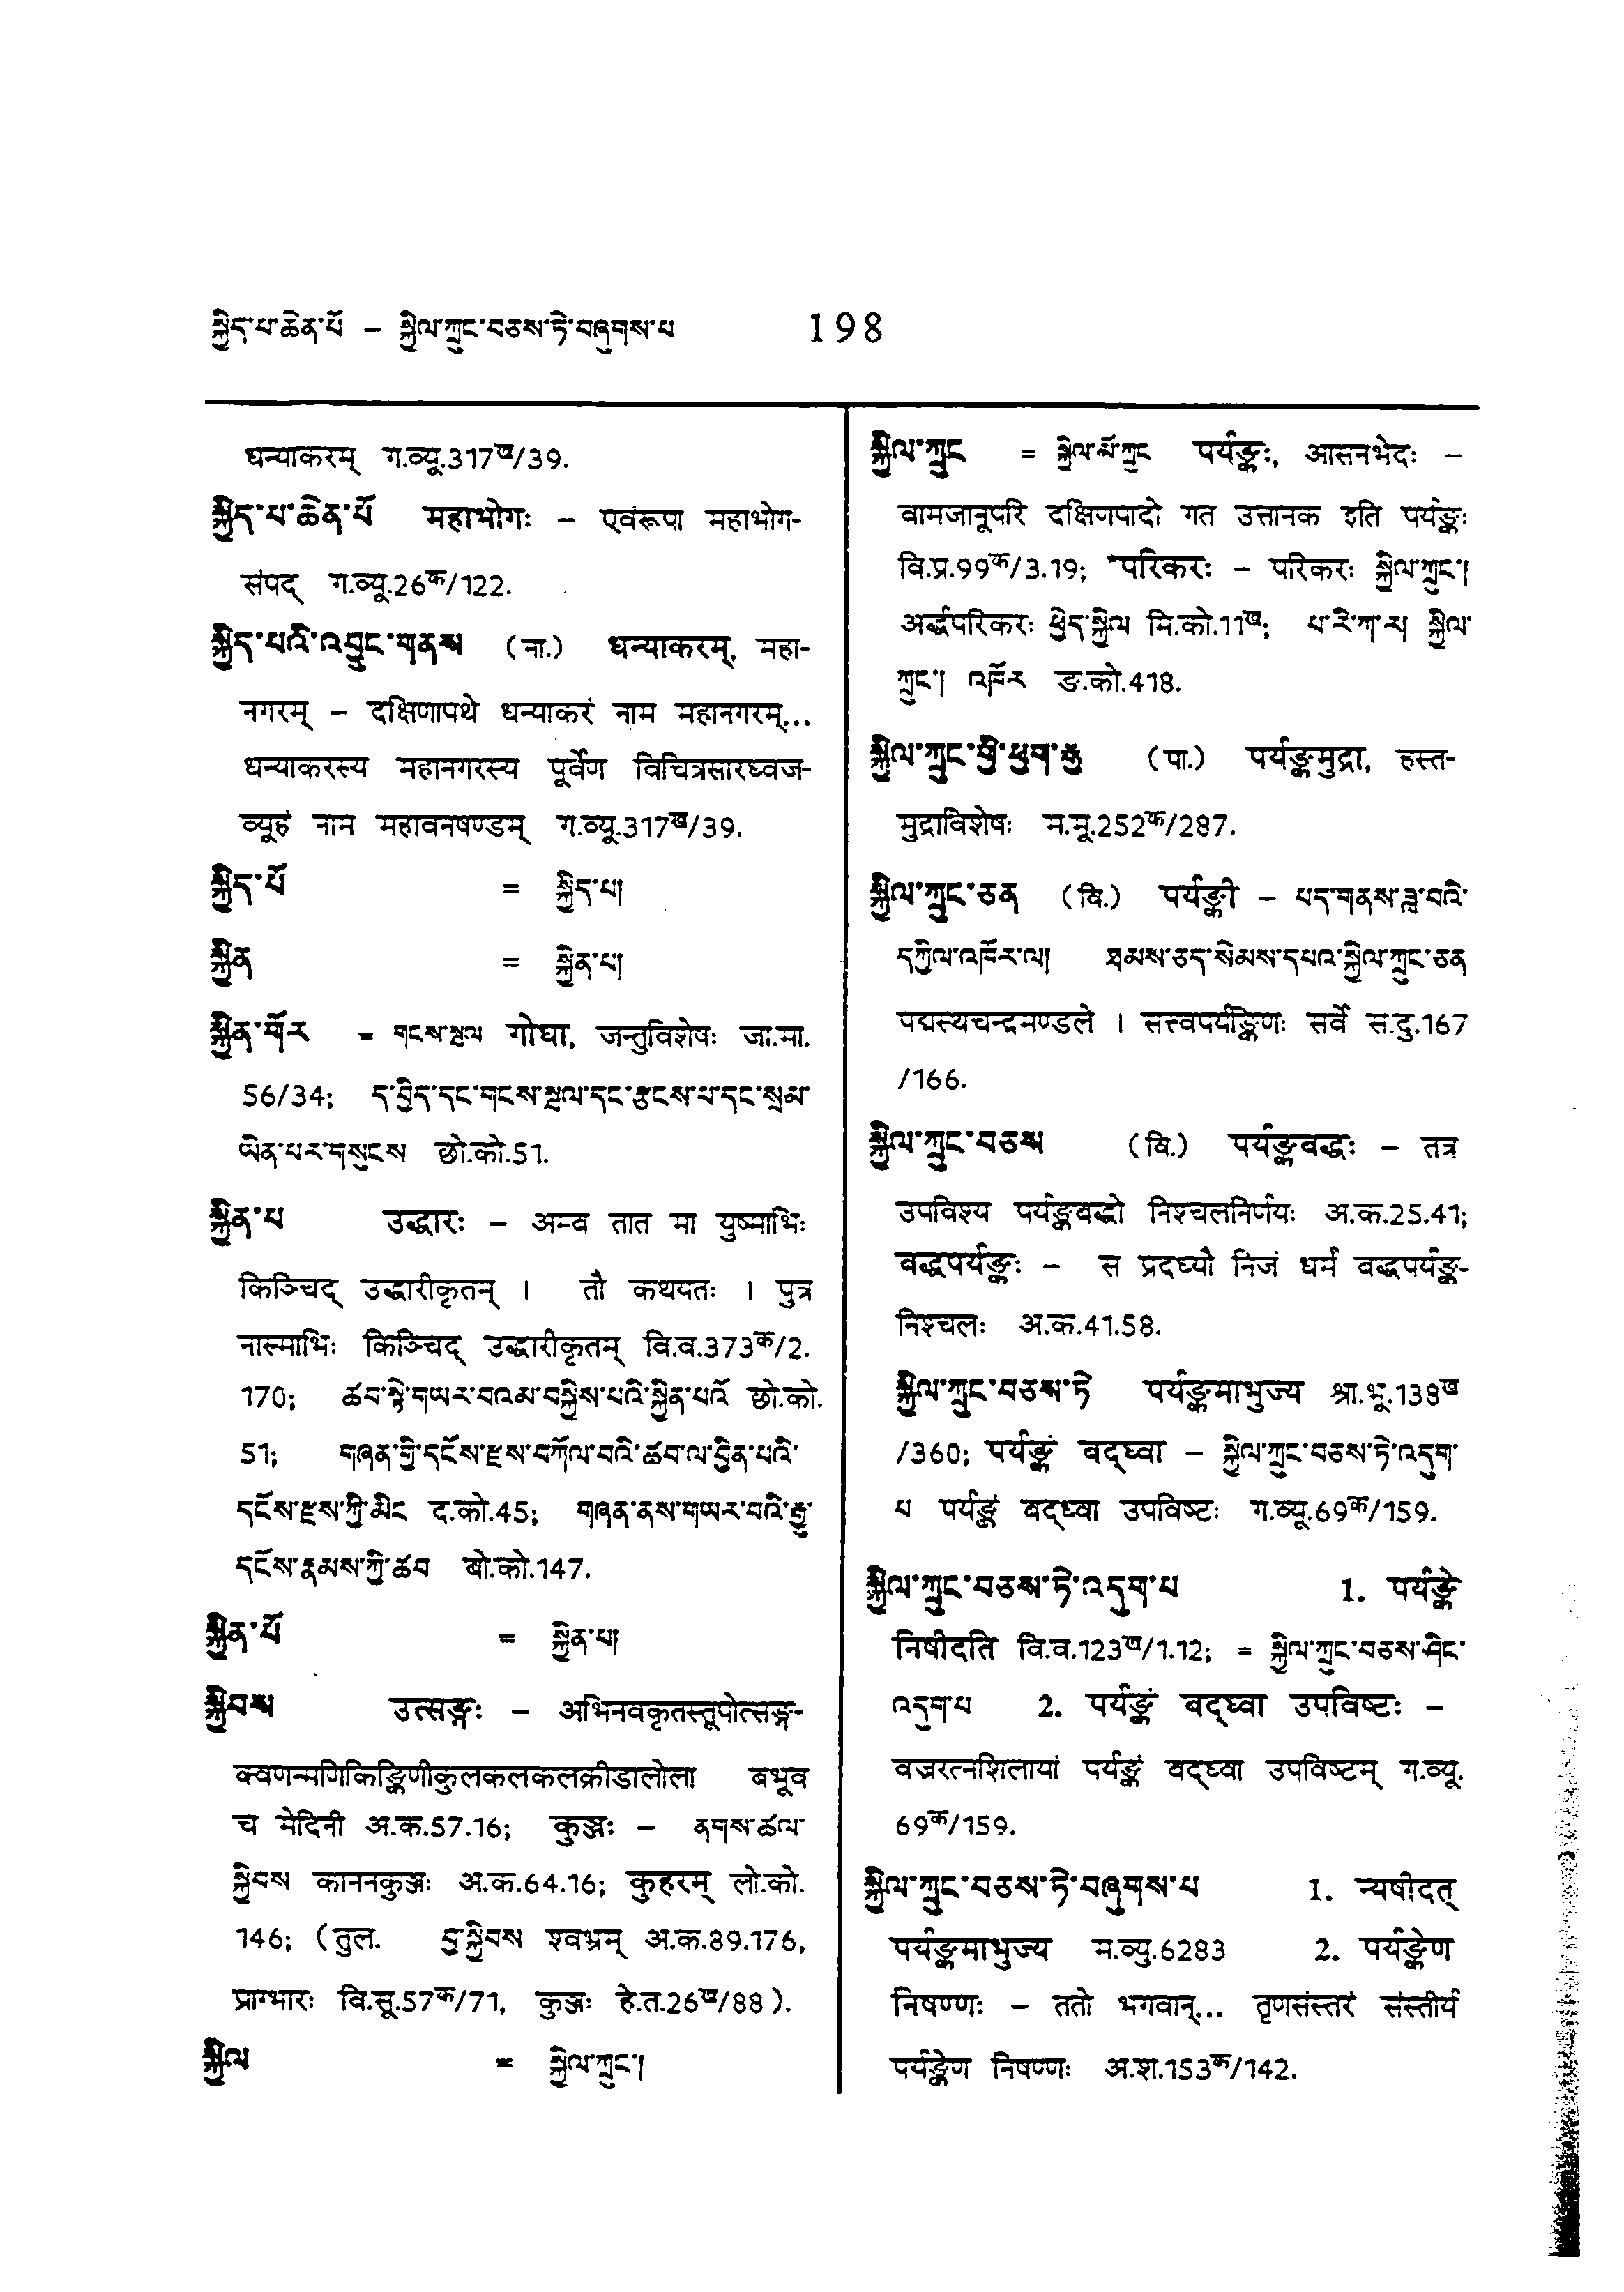 སྐྱིད་པ་ཆེན་པོ – སྐྱིལ་ཀྲུང་བཅས་ཏེ་བཞུགས་པ 198
धन्याकरम् ग.व्यू.317ख/39.
སྐྱིད་པ་ཆེན་པོ महाभोगः – एवंरूपा महाभोग-
संपद् ग.व्यू.26क/122.
སྐྱིད་པའི་འབྱུང་གནས (ना.) धन्याकरम्, महा-
नगरम् – दक्षिणापथे धन्याकरं नाम महानगरम्...
धन्याकरस्य महानगरस्य पूर्वेण विचित्रसारध्वज-
व्यूहं नाम महावनषण्डम् ग.व्यू.317ख/39.
སྐྱིད་པོ = སྐྱིད་པ།
སྐྱིན = སྐྱིན་པ།
སྐྱིན་གོར = གངས་སྦལ गोधा, जन्तुविशेषः जा.मा.
56/34; ད་བྱིད་དང་གངས་སྦལ་དང་རྩངས་པ་དང་སྲམ་
ཡིན་པར་གསུངས छो.को.51.
སྐྱིན་པ उद्धारः – अम्ब तात मा युष्माभिः
किञ्चिद् उद्धारीकृतम् । तौ कथयतः । पुत्र
नास्माभिः किञ्चिद् उद्धारीकृतम् वि.व.373क/2.
170; ཚབ་སྟེ་གཡར་བའམ་བསྐྱིས་པའི་སྐྱིན་པའོ छो.को.
51; གཞན་གྱི་དངོས་རྫས་བཀོལ་བའི་ཚབ་ལ་བྱིན་པའི་
དངོས་རྫས་ཀྱི་མིང द.को.45; གཞན་ནས་གཡར་བའི་རྒྱུ་
དངོས་རྣམས་ཀྱི་ཚབ बो.को.147.
སྐྱིན་པོ = སྐྱིན་པ།
སྐྱིབས उत्सङ्गः – अभिनवकृतस्तूपोत्सङ्ग-
क्वणन्मणिकिङ्किणीकुलकलकलक्रीडालोला बभूव
च मेदिनी अ.क.57.16; कुञ्जः – ནགས་ཚལ་
སྐྱིབས काननकुञ्जः अ.क.64.16; कुहरम् लो.को.
146; (तुल. བྲ་སྐྱིབས श्वभ्रम् अ.क.89.176,
प्राग्भारः वि.सू.57क/71, कुञ्जः हे.त.26ख/88).
སྐྱིལ = སྐྱིལ་ཀྲུང་།
སྐྱིལ་ཀྲུང = སྐྱིལ་མོ་ཀྲུང पर्यङ्कः, आसनभेदः –
वामजानूपरि दक्षिणपादो गत उत्तानक इति पर्यङ्कः
वि.प्र.99क/3.19; *परिकरः – परिकरः སྐྱིལ་ཀྲུང་།
अर्द्धपरिकरः ཕྱེད་སྐྱིལ मि.को.11ख; པ་རི་ཀ་ར། སྐྱིལ་
ཀྲུང་། འཁོར ङ.को.418.
སྐྱིལ་ཀྲུང་གྱི་ཕྱག་རྒྱ (पा.) पर्यङ्कमुद्रा, हस्त-
मुद्राविशेषः म.मू.252क/287.
སྐྱིལ་ཀྲུང་ཅན (वि.) पर्यङ्की – པད་གནས་ཟླ་བའི་
དཀྱིལ་འཁོར་ལ། ཐམས་ཅད་སེམས་དཔའ་སྐྱིལ་ཀྲུང་ཅན
पद्मस्थचन्द्रमण्डले । सत्त्वपर्यङ्किणः सर्वे स.दु.167
/166.
སྐྱིལ་ཀྲུང་བཅས (वि.) पर्यङ्कबद्धः – तत्र
उपविश्य पर्यङ्कबद्धो निश्चलनिर्णयः अ.क.25.41;
बद्धपर्यङ्कः – स प्रदध्यौ निजं धर्मं बद्धपर्यङ्क-
निश्चलः अ.क.41.58.
སྐྱིལ་ཀྲུང་བཅས་ཏེ पर्यङ्कमाभुज्य श्रा.भू.138ख
/360; पर्यङ्कं बद्ध्वा – སྐྱིལ་ཀྲུང་བཅས་ཏེ་འདུག་
པ पर्यङ्कं बद्ध्वा उपविष्टः ग.व्यू.69क/159.
སྐྱིལ་ཀྲུང་བཅས་ཏེ་འདུག་པ 1. पर्यङ्के
निषीदति वि.व.123ख/1.12; = སྐྱིལ་ཀྲུང་བཅས་ཤིང་
འདུག་པ 2. पर्यङ्कं बद्ध्वा उपविष्टः –
वज्ररत्नशिलायां पर्यङ्कं बद्ध्वा उपविष्टम् ग.व्यू.
69क/159.
སྐྱིལ་ཀྲུང་བཅས་ཏེ་བཞུགས་པ 1. न्यषीदत्
पर्यङ्कमाभुज्य म.व्यु.6283 2. पर्यङ्केण
निषण्णः – ततो भगवान्... तृणसंस्तरं संस्तीर्य
पर्यङ्केण निषण्णः अ.श.153क/142.